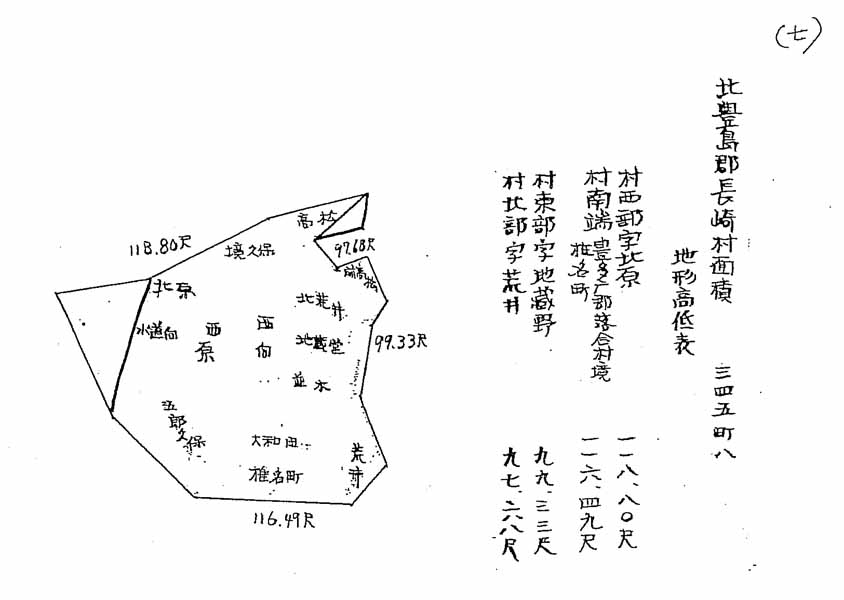 (七)
北豊島郡長崎村面積 三四五町八
地形高低表
村西部字北原 一一八、八〇尺
村南端豊多广郡落合村境 一一六、四九尺
椎名町
村東部字地蔵野 九九、三三尺
村北部字荒井 九七、六八尺
高松
118.80尺
境久保
97.68尺
高松
北原
北荒井
水道向
西原
西向
地蔵堂
99.33尺
並木
五郎久保
大和田
荒井
椎名町
116.49尺